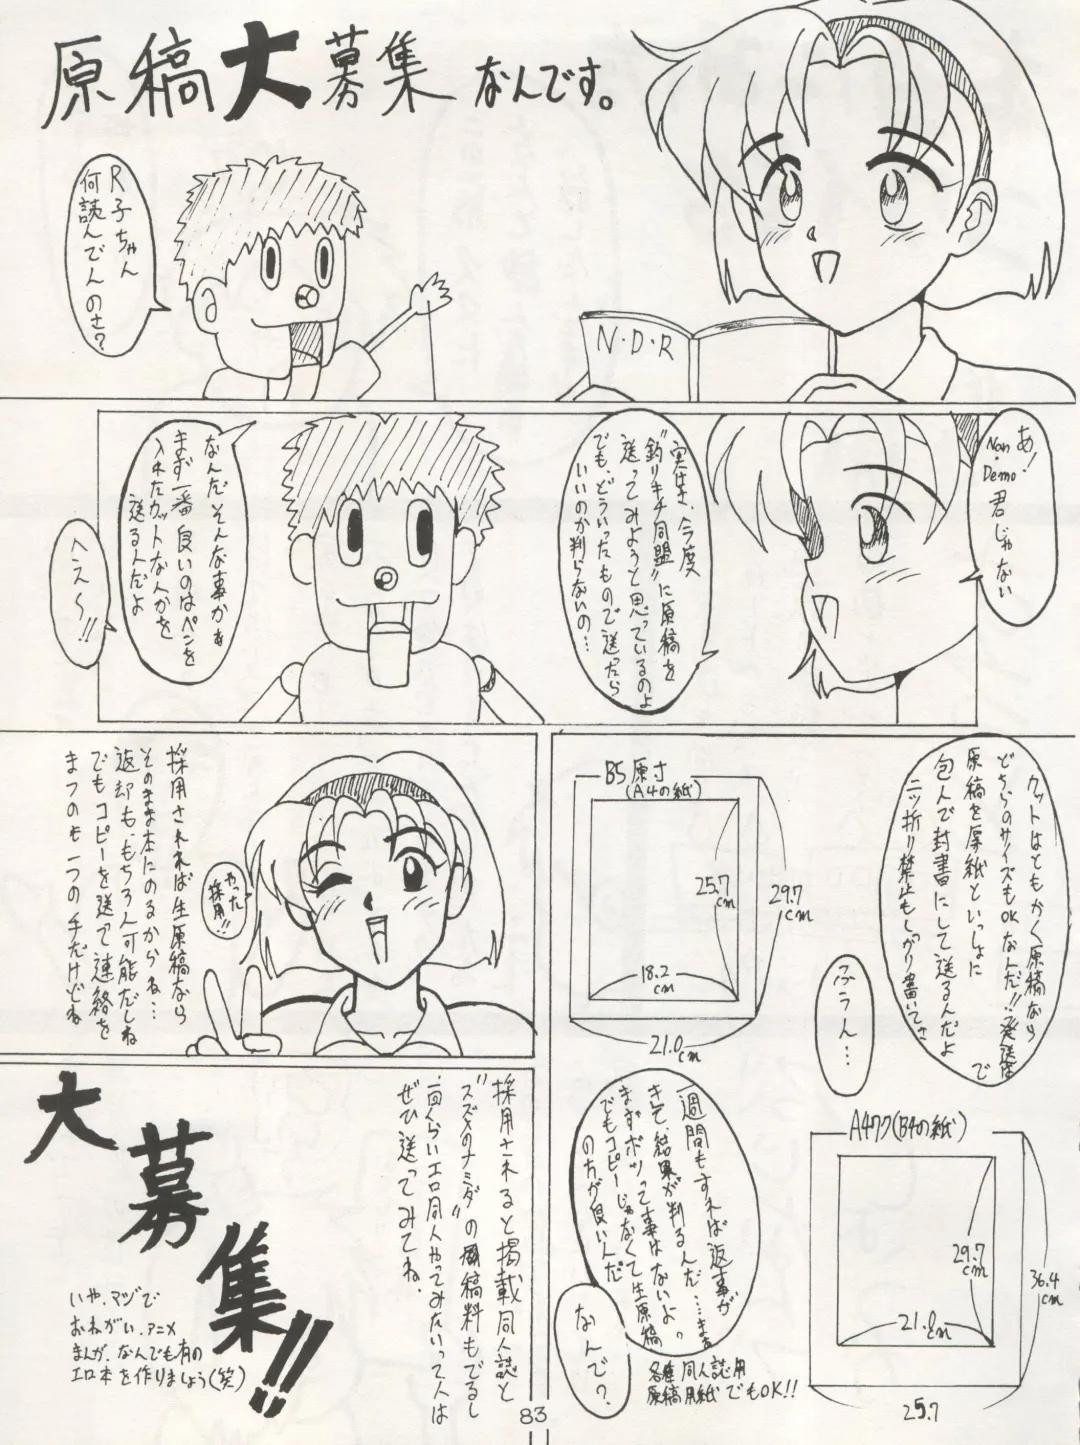 原稿大募集なんです。
R子ちゃん
何読んでんのさ?
N・D・R
あ!
Non・
Demo
君じゃない
実はさ、今度
"釣りキチ同盟"に原稿を
送ってみようと思っているのよ
でも、どういったもので送ったら
いいのか判らないの…
なんだそんな事かぁ
まず一番良いのはペンを
入れたカットなんかを
送るんだよ
へえ〜!!
カットはともかく原稿なら
どちらのサイズもOKなんだ!!発送は
原稿を厚紙といっしょに
包んで封書にして送るんだよ
二ッ折り禁止もしっかり書いてさ
ふうん…
B5原寸
(A4の紙)
25.7
cm
29.7
cm
18.2
cm
21.0cm
採用されれば生原稿なら
そのまま本にのるからね…
返却も、もちろん可能だしね
でもコピーを送って連絡を
まつのも一つの手だけどね
やった
採用!!
A4ワク(B4の紙)
29.7
cm
36.4
cm
21.0cm
25.7
一週間もすれば返事が
きて、結果が判るんだ……まぁ
まずボツって事はないよ。
でもコピーじゃなくて生原稿
の方が良いんだ
なんで?
各種同人誌用
原稿用紙でもOK!!
採用されると掲載同人誌と
"スズメのナミダ"の原稿料もでるし
一回くらいエロ同人やってみたいって人は
ぜひ送ってみてね.
大募集!!
いや、マジで
おねがい.アニメ
まんが、なんでも有の
エロ本を作りましょう(笑)
83